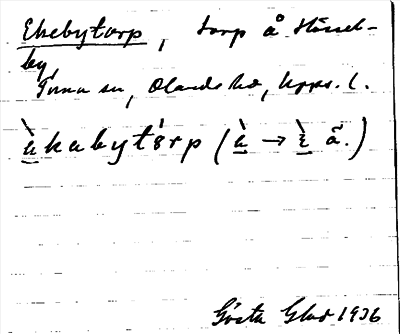 Ekebytorp, torp å Hässel-
by,
Tuna sn, Olands hd, Upps. l.
ä̀kabytórp (ä̀ → ɛ̀ ä̃.)
Gösta Glad 1936